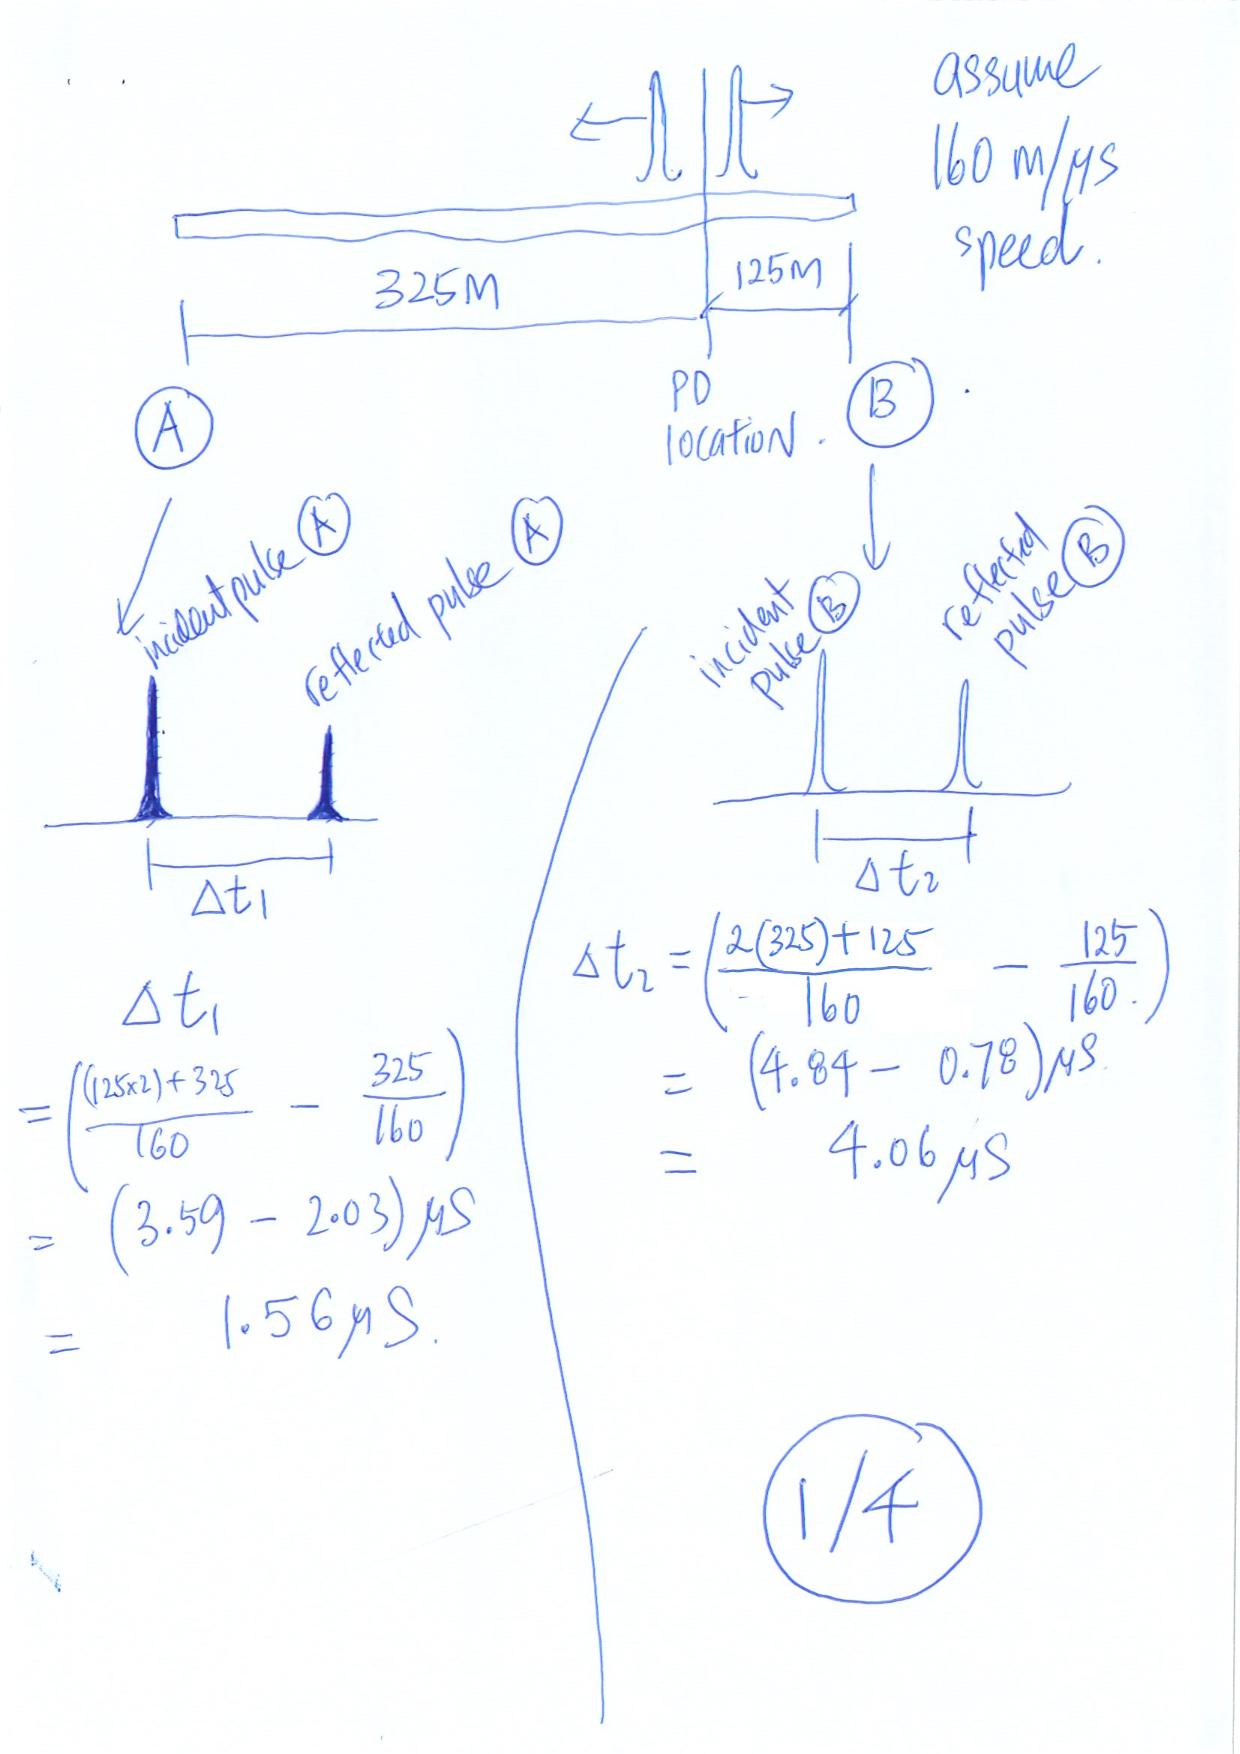 assume
160 m/μs
speed.
325M
125M
A
PD
location.
B
incident pulse A
reflected pulse A
incident
pulse B
reflected
pulse B
Δt1
Δt2
Δt1
= (((125x2)+325)/160 - 325/160)
= (3.59 - 2.03) μS
= 1.56 μS.
Δt2 = ((2(325)+125)/160 - 125/160.)
= (4.84 - 0.78) μS
= 4.06 μS
1/4